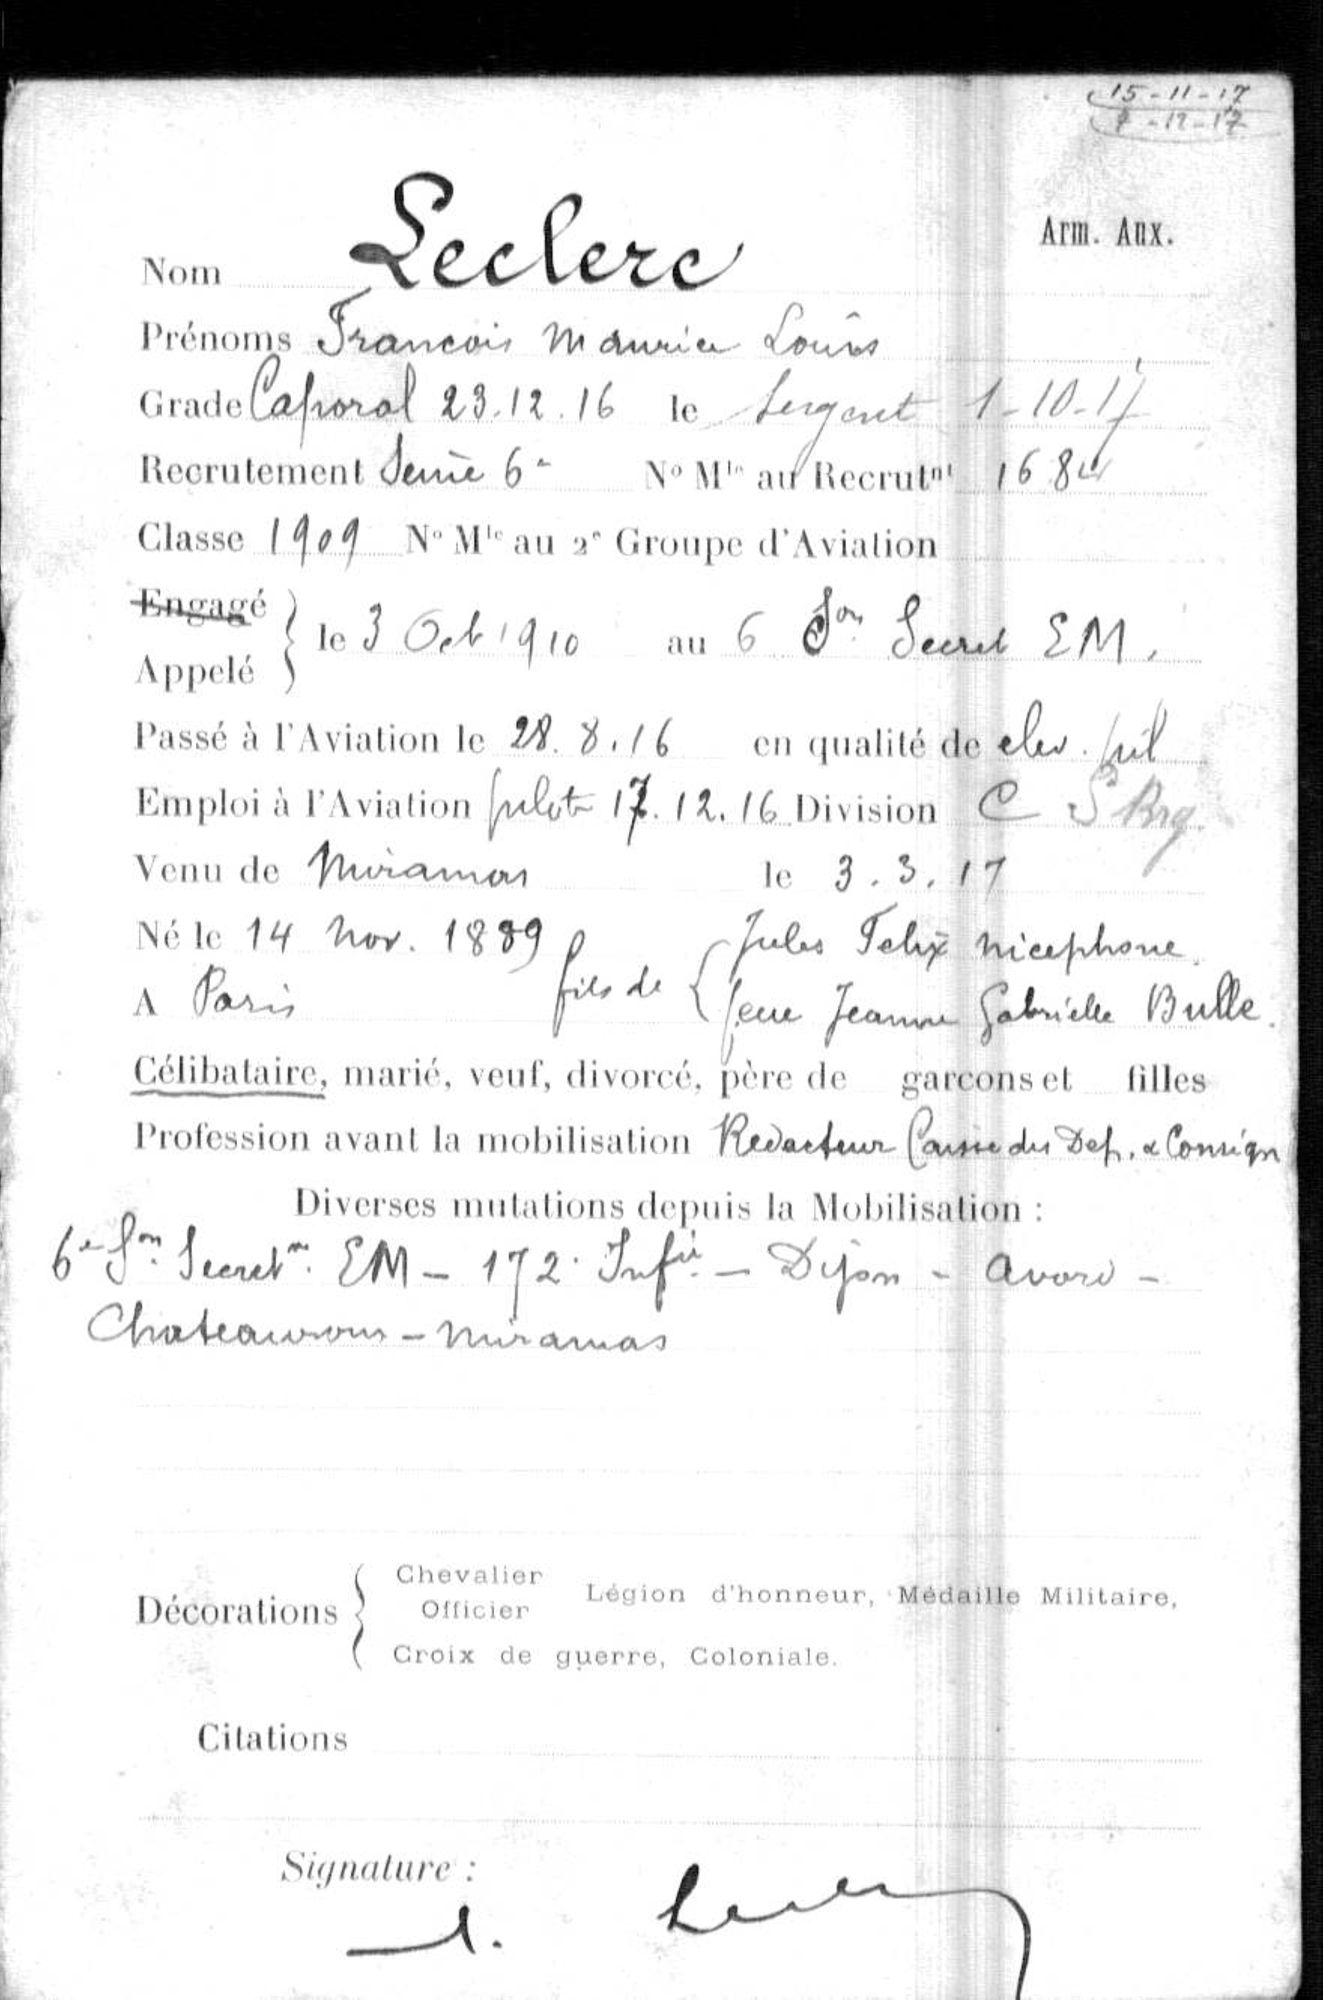 15-11-17
-12-17
Arm. Aux.
Nom Leclerc
Prénoms Francois Maurice Louis
Grade Caporal 23.12.16 le Sergent 1-10-17
Recrutement Seine 6e No Mle au Recrutnt 1684
Classe 1909 No Mle au 2e Groupe d'Aviation
Engagé
le 3 Oct 1910 au 6 Son Secret EM.
Appelé
Passé à l'Aviation le 28.8.16 en qualité de elev. pil
Emploi à l'Aviation pilote 17.12.16 Division C
Venu de Miramas le 3.3.17
Né le 14 Nov. 1889 fils de Jules Felix Nicephore
A Paris feue Jeanne Gabrielle Bulle.
Célibataire, marié, veuf, divorcé, père de garçons et filles
Profession avant la mobilisation Redacteur Caisse des Dep. & Consign
Diverses mutations depuis la Mobilisation :
6e Son Secretre EM - 172e Infie - Dijon - Avord -
Chateauroux - Miramas
Chevalier
Décorations Officier Légion d'honneur, Médaille Militaire,
Croix de guerre, Coloniale.
Citations
Signature :